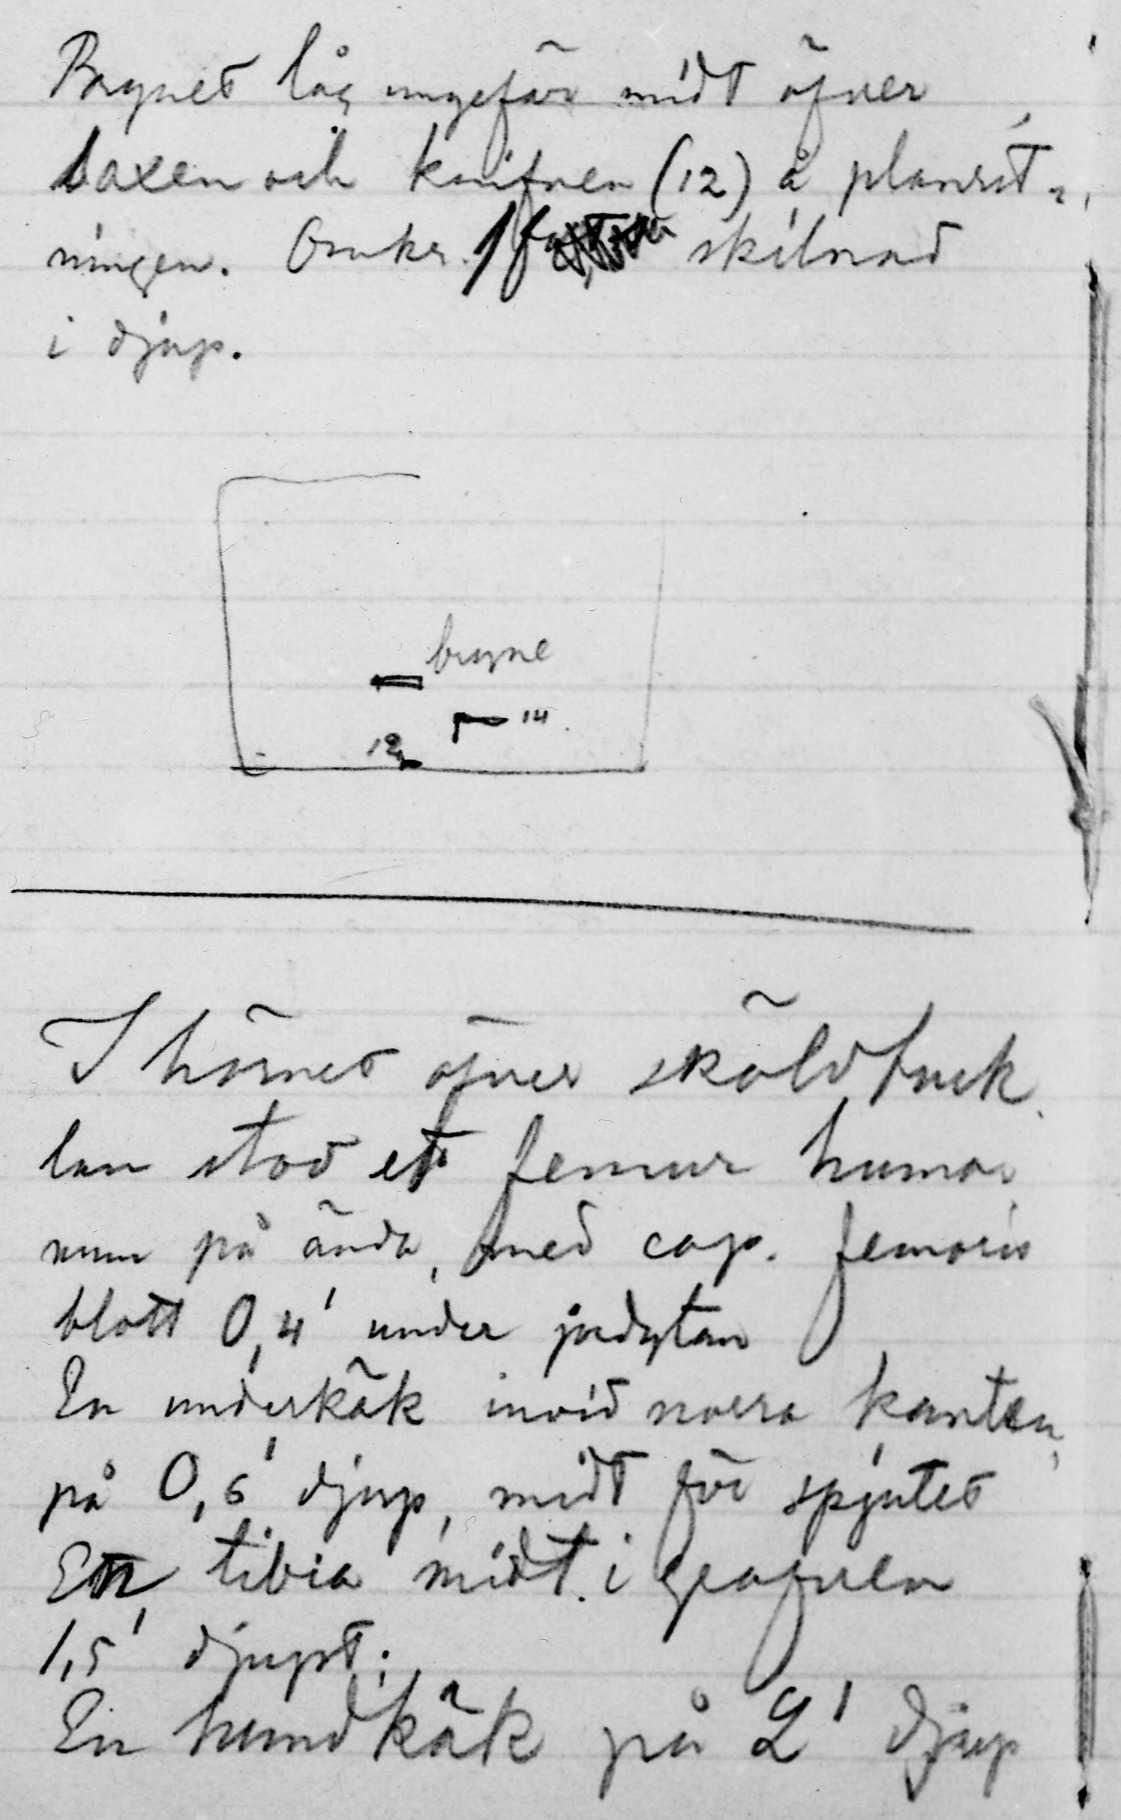 Brynet låg ungefär midt öfver
saxen och knifven (12) å planrit-
ningen. Omkr. 1 fot skilnad
i djup.
bryne
14
12
I hörnet öfver sköldbuck
lan stod et femur huma
num på ända, med cap. femoris
blott 0,4' under jordytan
En underkäk invid norra kanten,
på 0,6' djup, midt för spjutet
En tibia midt i grafven
1,5' djupt.
En hundkäk på 2' djup